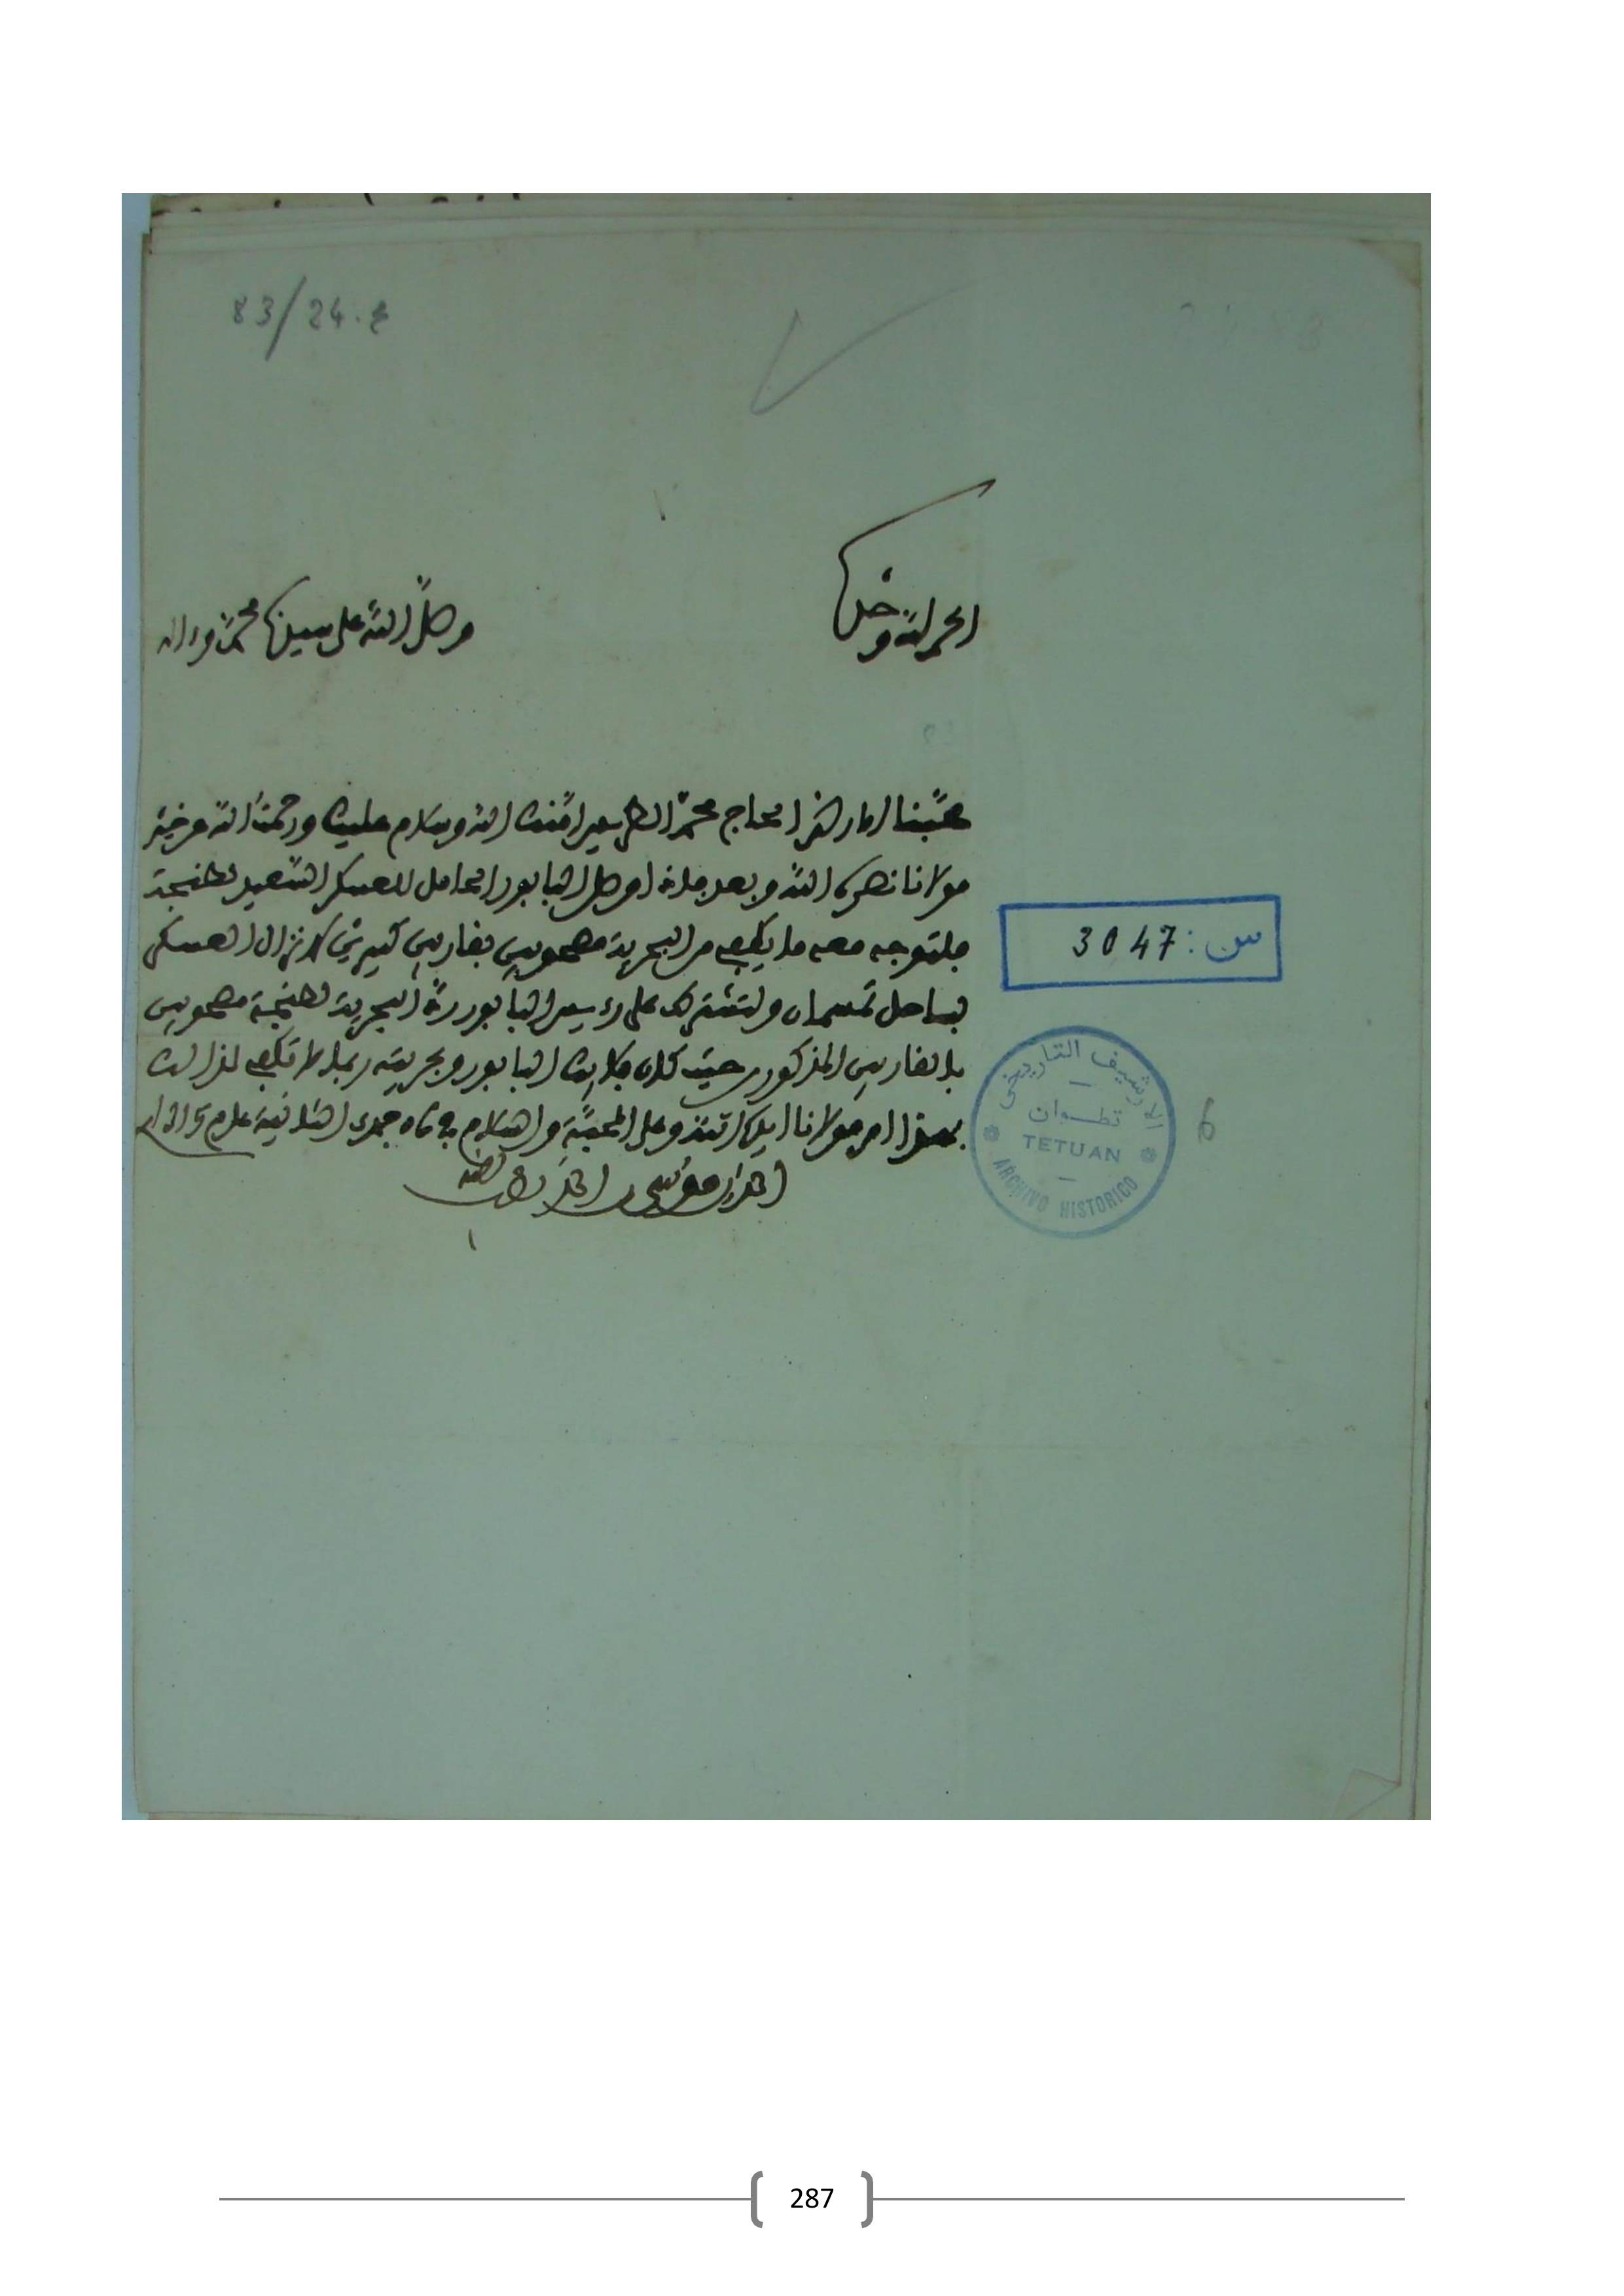 83/24.ع
الحمد لله وحده
وصلى الله على سيدنا محمد وءاله
محبنا الحاج محمد امنك الله وسلام عليك ورحمة الله عن خير
مولانا نصره الله وبعد فإذا وصل البابور الحامل للعسكر السعيد لطنجة
فلتوجه معه ما يكفي من البحرية مصحوبين بفاربين كبيرين لإنزال العسكر
بساحل تمسمان ولتشترط على رءيس البابور رد البحرية لطنجة مصحوبين
بالفاربين المذكورين حيث كان فلايك البابور وبحريته ربما لا تكفي لذلك
بهذا امر مولانا ايده الله وعلى المحبة والسلام في جمدى الثانية عام
موسى بن احمد لطف الله به
س : 3047
الارشيف التاريخي
تطوان
TETUAN
ARCHIVO HISTORICO
6
287